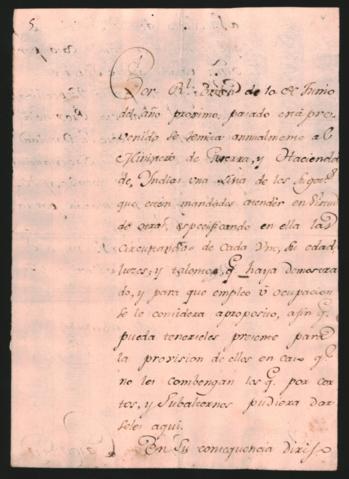 5
Por Rl. Orden de 10 de Junio
del año proximo, pasado está pre-
venido se remita anualmente al
Ministerio de Guerra, y Hacienda
de Yndias una lista de los Sugetos
que estén mandados atender en virtud
de otras, especificando en ella las
circunstancias de cada Uno, su edad
luzes, y talentos, q. haya demostra-
do, y para que empleo û ocupacion
se le considera aproposito, afin q.
pueda tenerseles presente para
la provision de ellos en caso q.
no les combengan los q. por cor-
tos, y Subalternos pudiera dar
seles aqui.
En Su consequencia dirijo